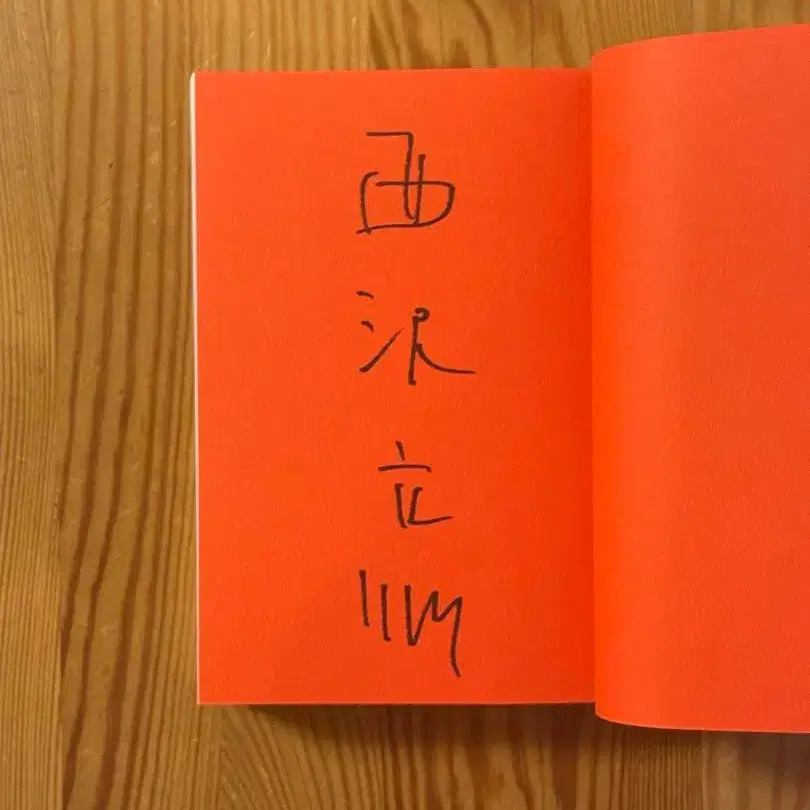 西沢立衛